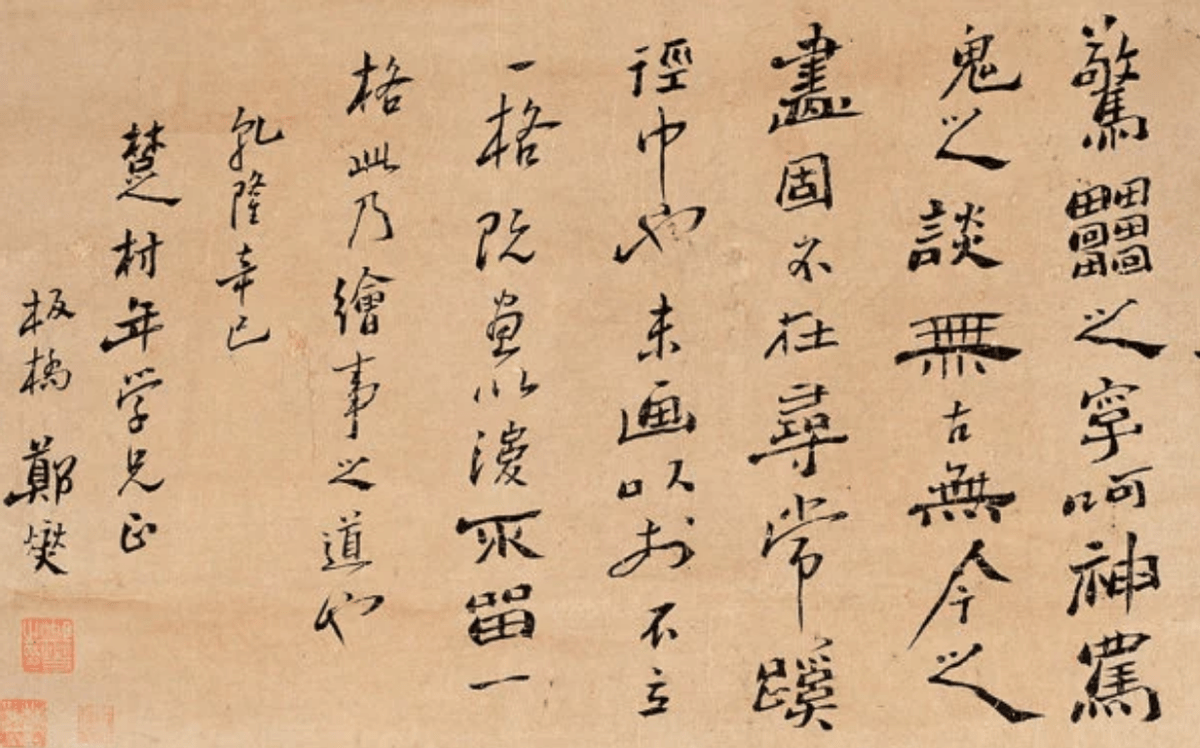 驚雷之字呵神罵
鬼之談無古無今之
畫固不在尋常蹊
徑中也未画以前不立
一格既畫以後不留一
格此乃繪事之道也
乾隆辛巳
楚村年学兄正
板橋鄭燮